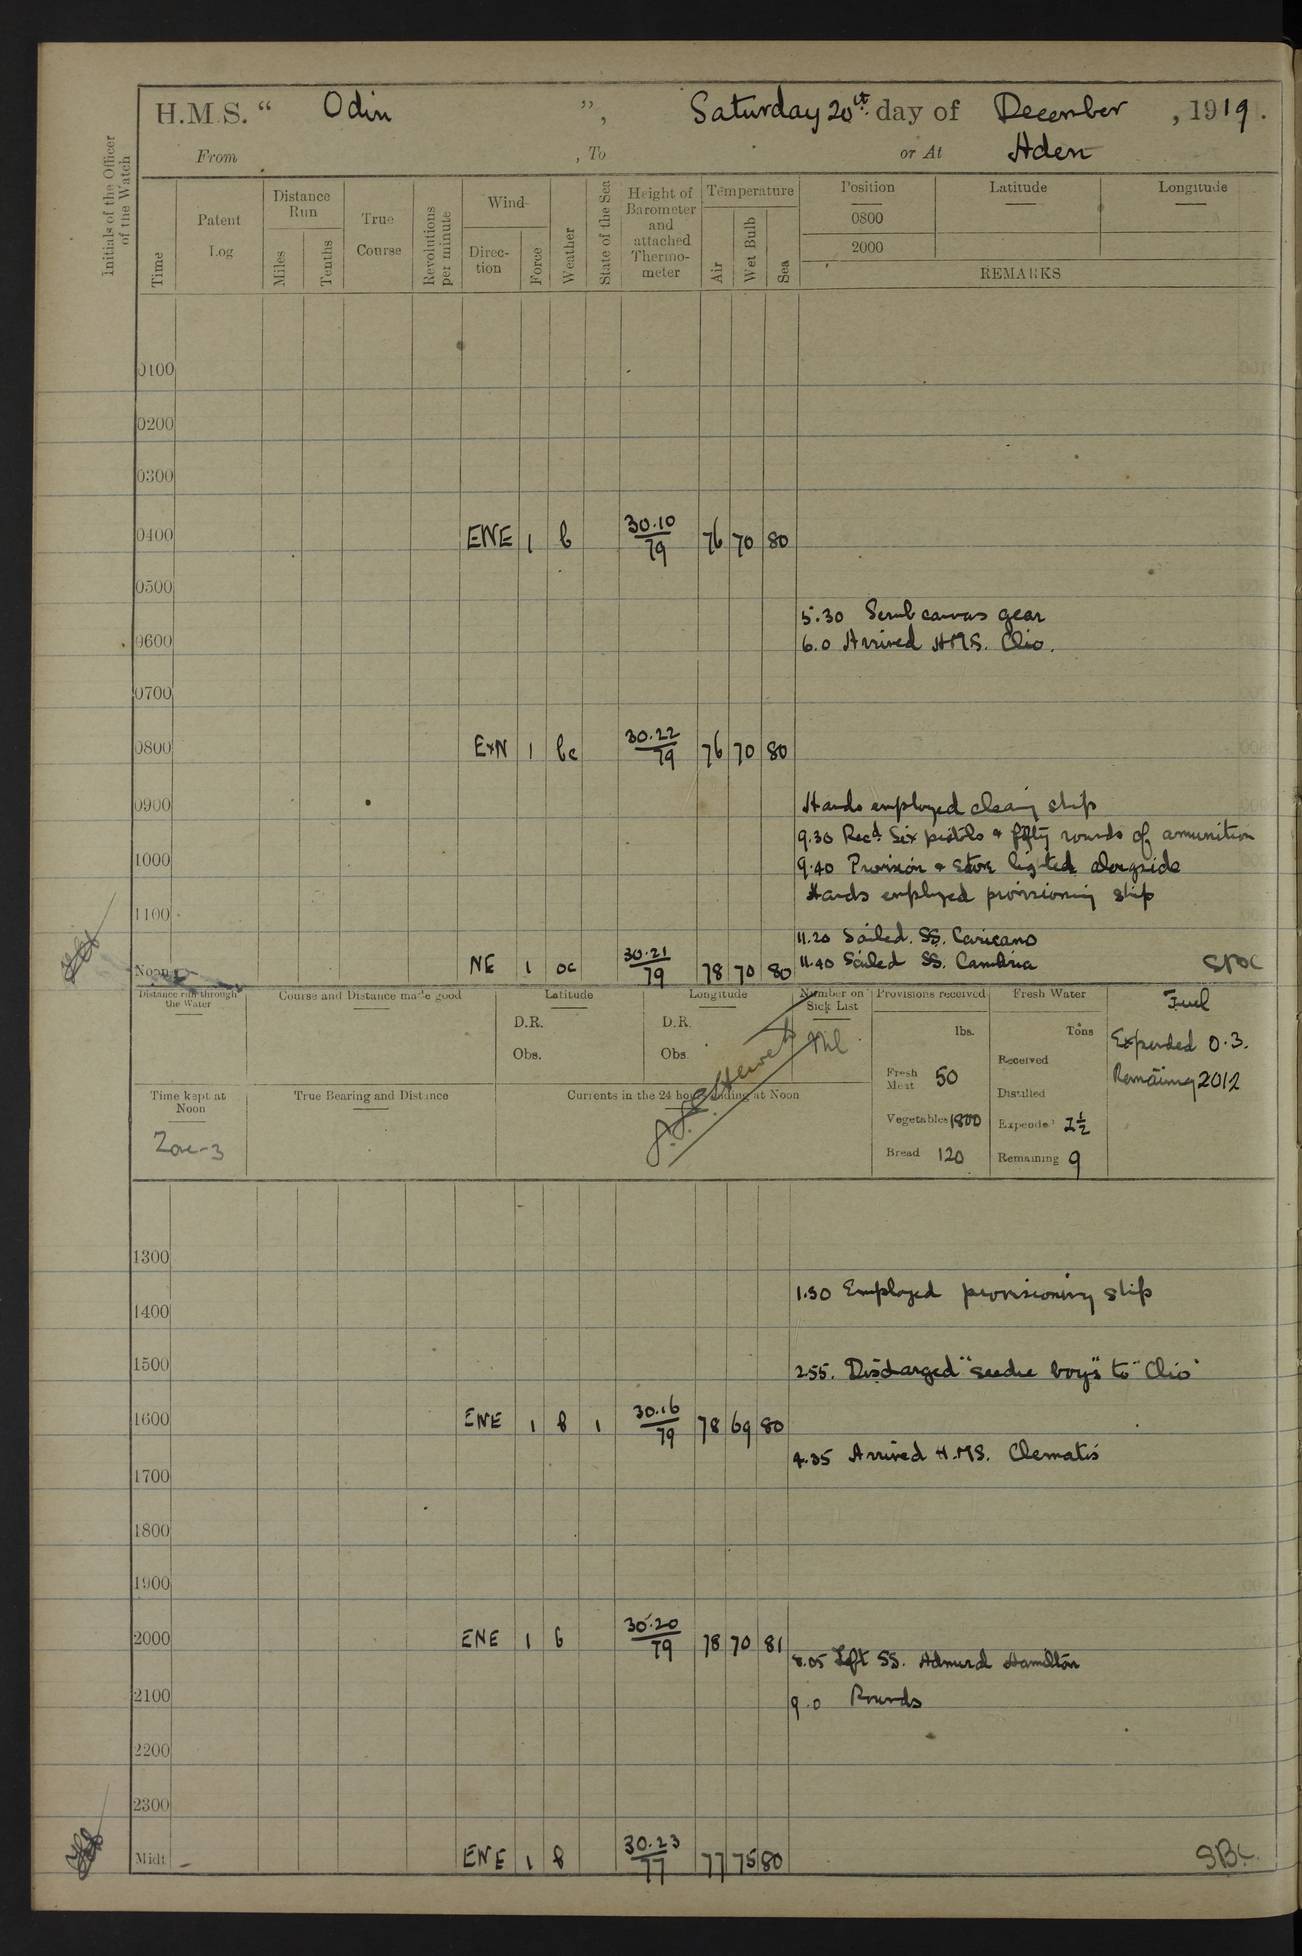 H.M.S. “ Odin ”, Saturday 20th day of December, 1919.
From , To or At Aden
Initials of the Officer of the Watch
Time
Patent Log
Distance Run
Miles
Tenths
True Course
Revolutions per minute
Wind
Direction
Force
Weather
State of the Sea
Height of Barometer and attached Thermometer
Temperature
Air
Wet Bulb
Sea
Position Latitude Longitude
0800
2000
REMARKS
0100
0200
0300
0400 ENE 1 b 30.10/79 76 70 80
0500
5.30 Scrub canvas gear
0600
6.0 Arrived HMS. Clio.
0700
0800 ExN 1 bc 30.22/79 76 70 80
0900 Hands employed cleaning ship
9.30 Recd. Six pistols & fifty rounds of amunition
1000 9.40 Provision & Store lighter alongside
Hands employed provisioning ship
1100
11.20 Sailed. SS.
Noon NE 1 oc 30.21/79 78 70 80 11.40 Sailed SS. Cambria
Distance run through the Water
Course and Distance made good
Latitude
D.R.
Obs.
Longitude
D.R.
Obs.
Number on Sick List
Nil
Provisions received
lbs.
Fresh Meat 50
Vegetables 1800
Bread 120
Fresh Water
Tons
Received
Distilled
Expended 1½
Remaining 9
Fuel
Expended 0.3.
Remaining 2012
Time kept at Noon
Zone-3
True Bearing and Distance
Currents in the 24 hours ending at Noon
1300
1.30 Employed provisioning ship
1400
1500 2.55. Discharged "seedie boys" to "Clio"
1600 ENE 1 b 1 30.16/79 78 69 80
4.35 Arrived H.MS. Clematis
1700
1800
1900
2000 ENE 1 b 30.20/79 78 70 81
8.05 Left SS. Admiral Hamilton
2100 9.0 Rounds
2200
2300
Midt. ENE 1 b 30.23/77 77 75 80